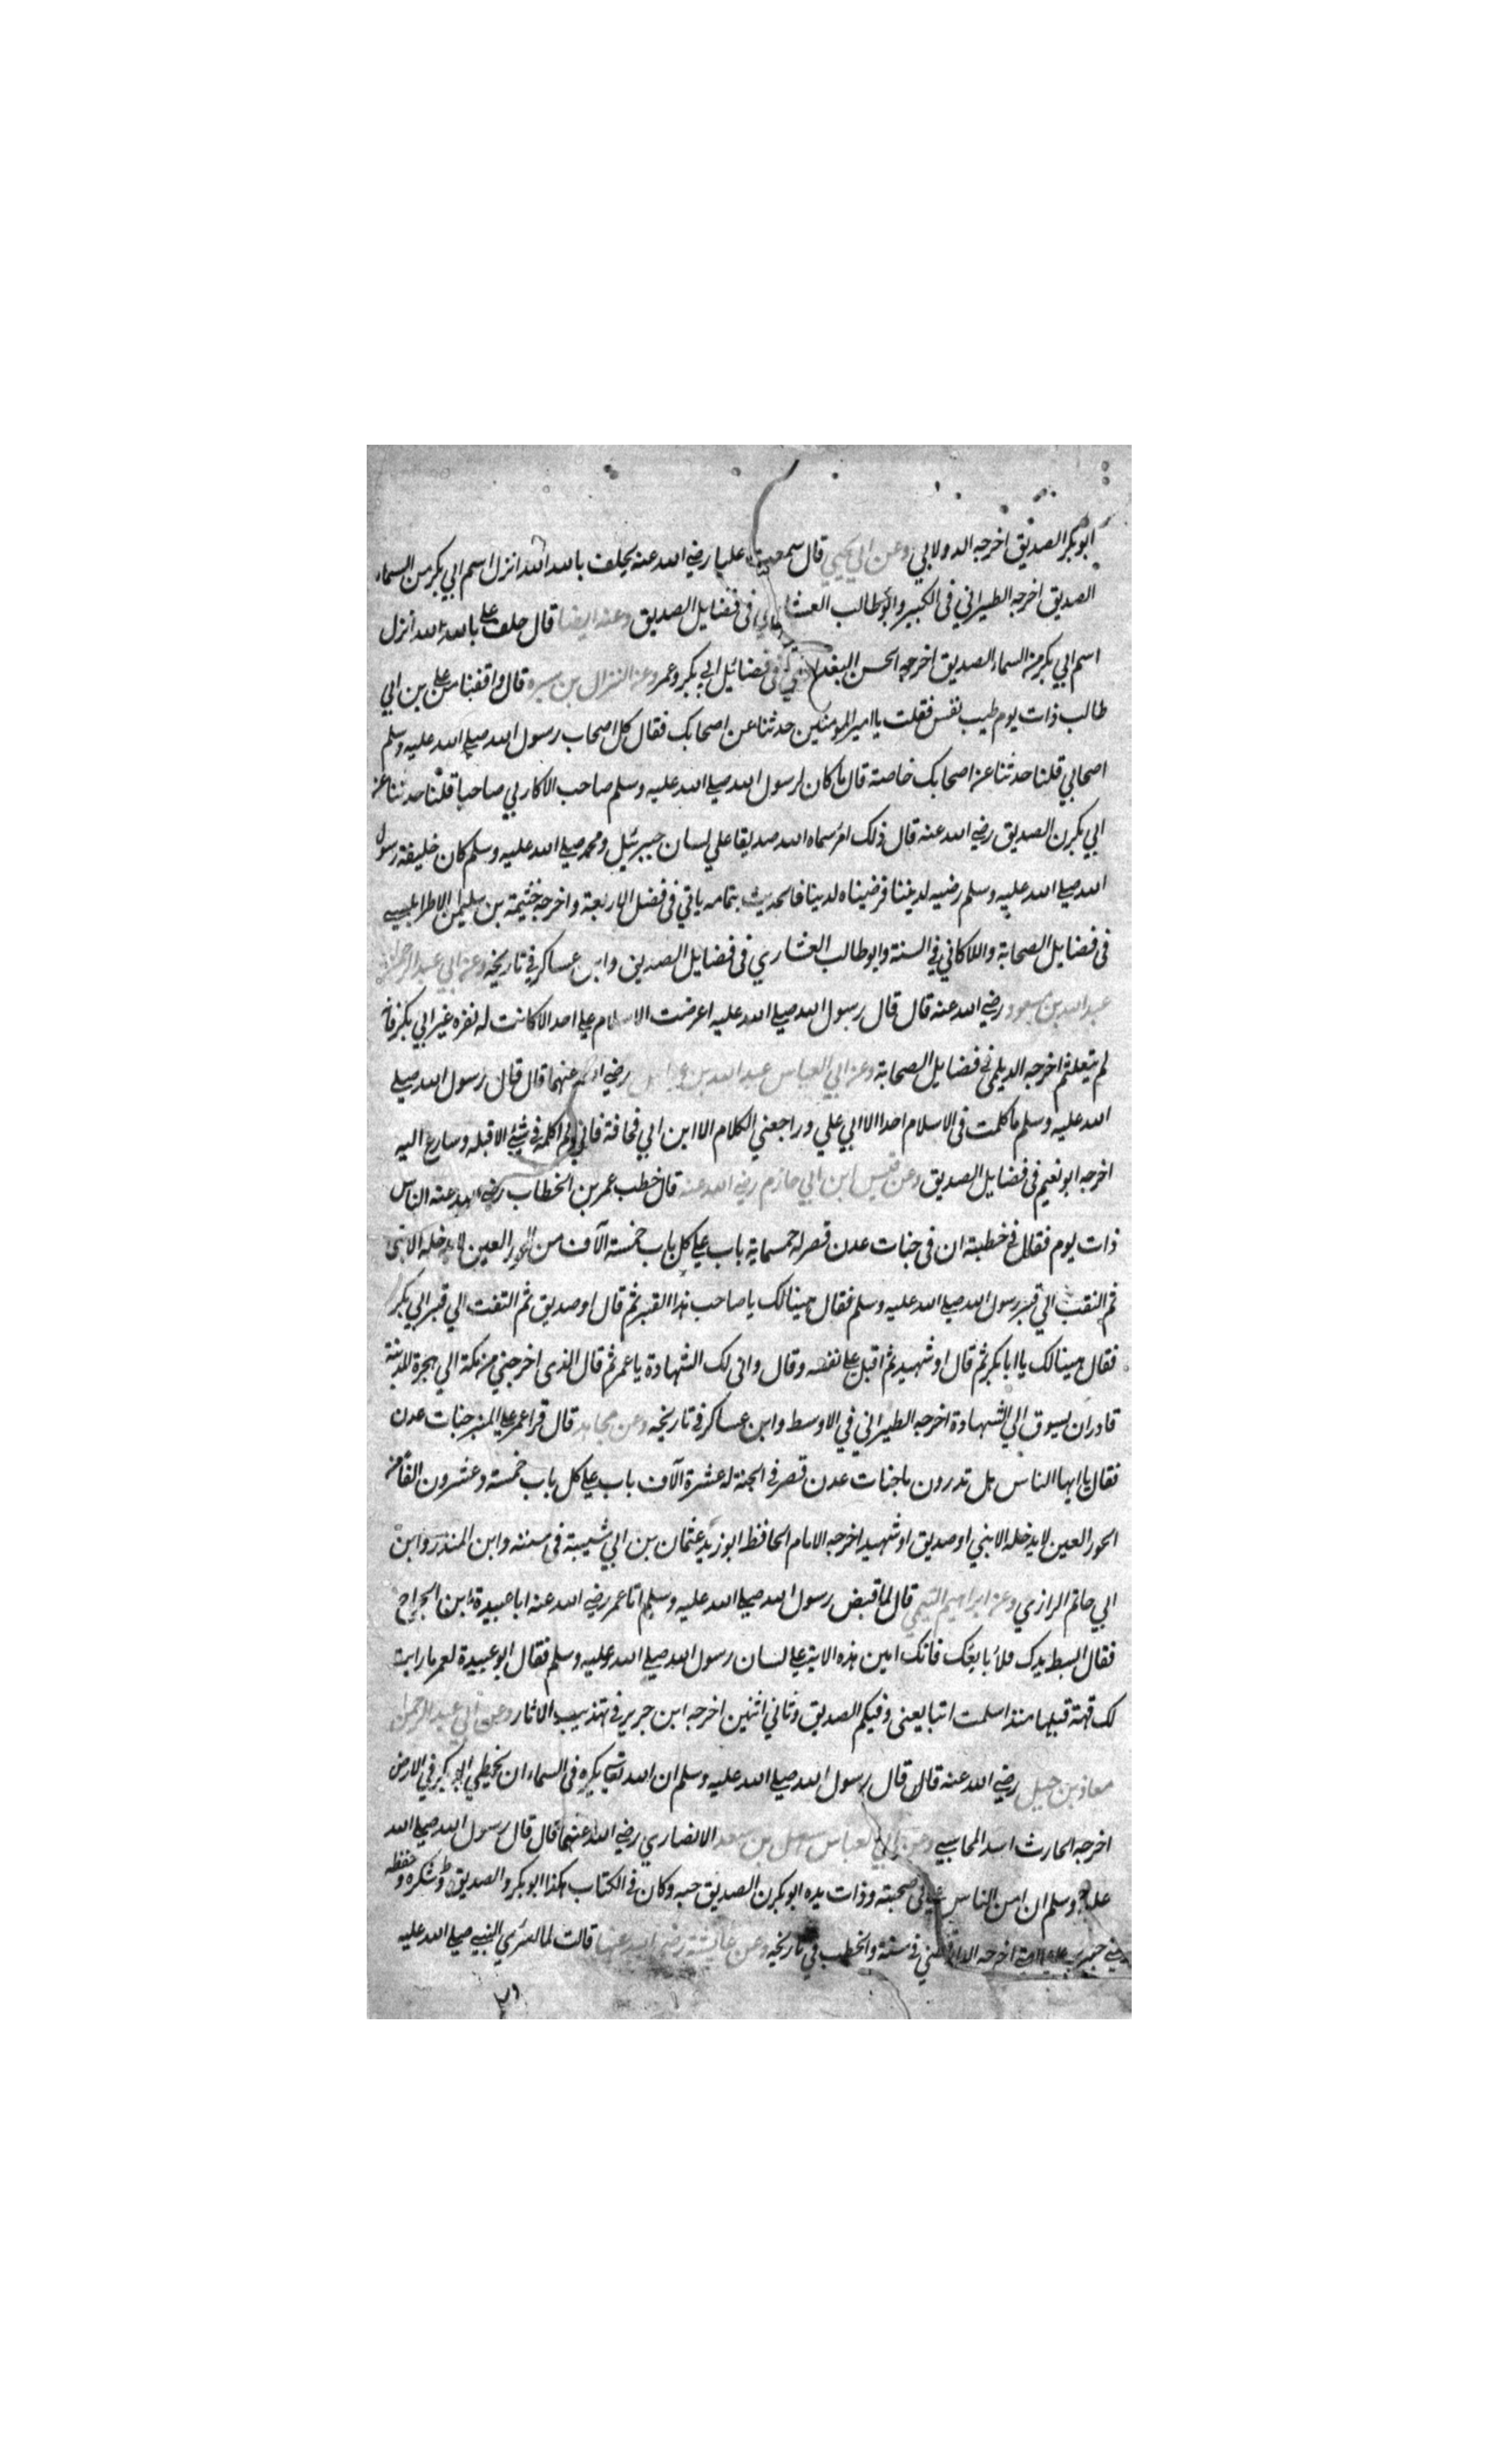 ابو بكر الصديق اخرجه الدولابي وعن ابي يحيي قال سمعت عليا رضي الله عنه يحلف بالله لله انزل اسم ابي بكر من السماء
الصديق اخرجه الطبراني في الكبير وابو طالب العشاري في فضايل الصديق وعنه ايضا قال حلف علي بالله الله انزل
اسم ابي بكر من السماء الصديق اخرجه الحسن البغدادي في فضائل ابي بكر وعمر وعن النزال بن سبره قال واقفنا من علي بن ابي
طالب ذات يوم طيب نفس فقلت يا امير المومنين حدثنا عن اصحابك فقال كل اصحاب رسول الله صلي الله عليه وسلم
اصحابي قلنا حدثنا عن اصحابك خاصة قال ما كان لرسول الله صلي الله عليه وسلم صاحب الا كان لي صاحبا قلنا حدثنا عن
ابي بكرن الصديق رضي الله عنه قال ذلك امرؤ سماه الله صديقا علي لسان جبرئيل ومحمد صلي الله عليه وسلم كان خليفة رسول
الله صلي الله عليه وسلم رضيه لديننا فرضيناه لدينا فالحديث بتمامه ياتي في فضل الاربعة واخرجه خثيمة بن سليمن الاطرابلسي
في فضايل الصحابة واللالكائي في السنة وابو طالب العشاري في فضايل الصديق وابن عساكر في تاريخه وعن ابي عبد الرحمن
عبد الله بن مسعود رضي الله عنه قال قال رسول الله صلي الله عليه اعرضت الاسلام علي احد الا كانت له نفره غير ابي بكر فانه
لم يتعلثم اخرجه الديلمي في فضايل الصحابة وعن ابي العباس عبد الله بن عباس رضي الله عنهما قال قال رسول الله صلي
الله عليه وسلم ما كلمت في الاسلام احدا الا ابي علي وراجعني الكلام الا ابن ابي قحافة فاني لم اكلمه في شئ الا قبله وسارع اليه
اخرجه ابو نعيم في فضايل الصديق وعن قيس ابن ابي حازم رضي الله عنه قال خطب عمر بن الخطاب رضي الله عنه الناس
ذات يوم فقال في خطبته ان في جنات عدن قصر له خمسماية باب علي كل باب خمسة آلاف من الحور العين لا يدخله الا نبي
ثم التفت الي قبر رسول الله صلي الله عليه وسلم فقال هينا لك يا صاحب هذا القبر ثم قال او صديق ثم التفت الي قبر ابي بكر
فقال هينا لك يا ابا بكر ثم قال او شهيد ثم اقبل علي نفسه وقال واني لك الشهادة يا عمر ثم قال الذي اخرجني من مكة الي هجرة المدينة
قادر ان يسوق الي الشهادة اخرجه الطبراني في الاوسط وابن عساكر في تاريخه وعن مجاهد قال قرا عمر علي المنبر جنات عدن
فقال يا ايها الناس هل تدرون ما جنات عدن قصر في الجنة له عشرة آلاف باب علي كل باب خمسة وعشرون الفا من
الحور العين لا يدخله الا نبي او صديق او شهيد اخرجه الامام الحافظ ابو زيد عثمان بن ابي شيبة في سننه وابن المنذر وابن
ابي حاتم الرازي وعن ابراهيم التيمي قال لما قبض رسول الله صلي الله عليه وسلم اتا عمر رضي الله عنه ابا عبيدة ابن الجراح
فقال ابسط يدك فلأبايعك فانك امين هذه الامة علي لسان رسول الله صلي الله عليه وسلم فقال ابو عبيدة لعمر ما رايت
لك قهة قبلها منذ اسلمت اتبايعني وفيكم الصديق وثاني اثنين اخرجه ابن جرير في تهذيب الاثار وعن ابي عبد الرحمن
معاذ بن جبل رضي الله عنه قال قال رسول الله صلي الله عليه وسلم ان الله تعالي يكره في السماء ان يخطي ابو بكر في الارض
اخرجه الحارث اسد المحاسبي وعن ابي العباس سهل بن سعد الانصاري رضي الله عنهما قال قال رسول الله صلي الله
عليه وسلم ان امن الناس علي في صحبته وذات يده ابو بكرن الصديق حبه وكان في الكتاب هكذا ابو بكر والصديق وشكره وحفظه
اخرجه الدارقطني في سننه والخطيب في تاريخه وعن عايشة رضي الله عنها قالت لما اسري النبي صلي الله عليه